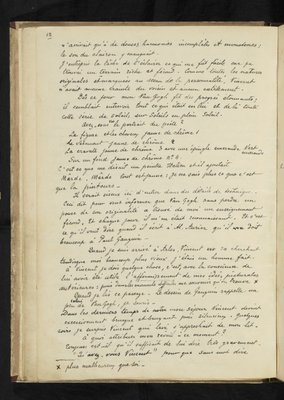 n'arrivait qu'à de douces harmonies incomplètes et monotones;
le son du clairon y manquait.
J'entrepris la tâche de l'éclairer ce qui me fut facile car je
trouvai un terrain riche et fécond. Comme toutes les natures
originales et marquées au sceau de la personnalité, Vincent
n'avait aucune crainte du voisin et aucun entêtement.
Dès ce jour mon Van Gogh fit des progrès étonnants;
il semblait entrevoir tout ce qui était en lui et de là toute
cette série de soleils sur soleils en plein soleil.
Avez-vous vu le portrait du poète?
La figure et les cheveux jaune de chrôme 1
Le vêtement jaune de chrôme 2
La cravate jaune de chrôme 3 avec une épingle émeraude, Vert
émeraude
Sur un fond jaune de chrôme N° 4.
C'est ce que me disait un peintre Italien et il ajoutait
Marde, Marde tout est jaune: je ne sais plus ce que c'est
que la peinture.
Il serait oiseux ici d'entrer dans des détails de technique.
Ceci dit pour vous informer que Van Gogh sans perdre un
pouce de son originalité a trouvé de moi un enseignement
fécond. Et chaque jour il m'en était reconnaissant. Et c'est
ce qu'il veut dire quand il écrit à M. Aurier qu'il doit
beaucoup à Paul Gauguin
Quand je suis arrivé à Arles, Vincent se cherchait
tandis que moi beaucoup plus vieux j'étais un homme fait.
A Vincent je dois quelque chose, c'est, avec la conscience de
lui avoir été utile l'affermissement de mes idées picturales
Quand je lis ce passage: Le dessin de Gauguin rappelle un
peu de Van Gogh, je souris.
Dans les derniers temps de mon séjour Vincent devint
excessivement brusque et bruyant, puis silencieux. Quelques
soirs je surpris Vincent qui levé s'approchait de mon lit.
A quoi attribuer mon réveil à ce moment?
Toujours est-il qu'il suffisait de lui dire très gravement
"Qu'avez-vous Vincent" pour que sans mot dire
plus malheureux que soi